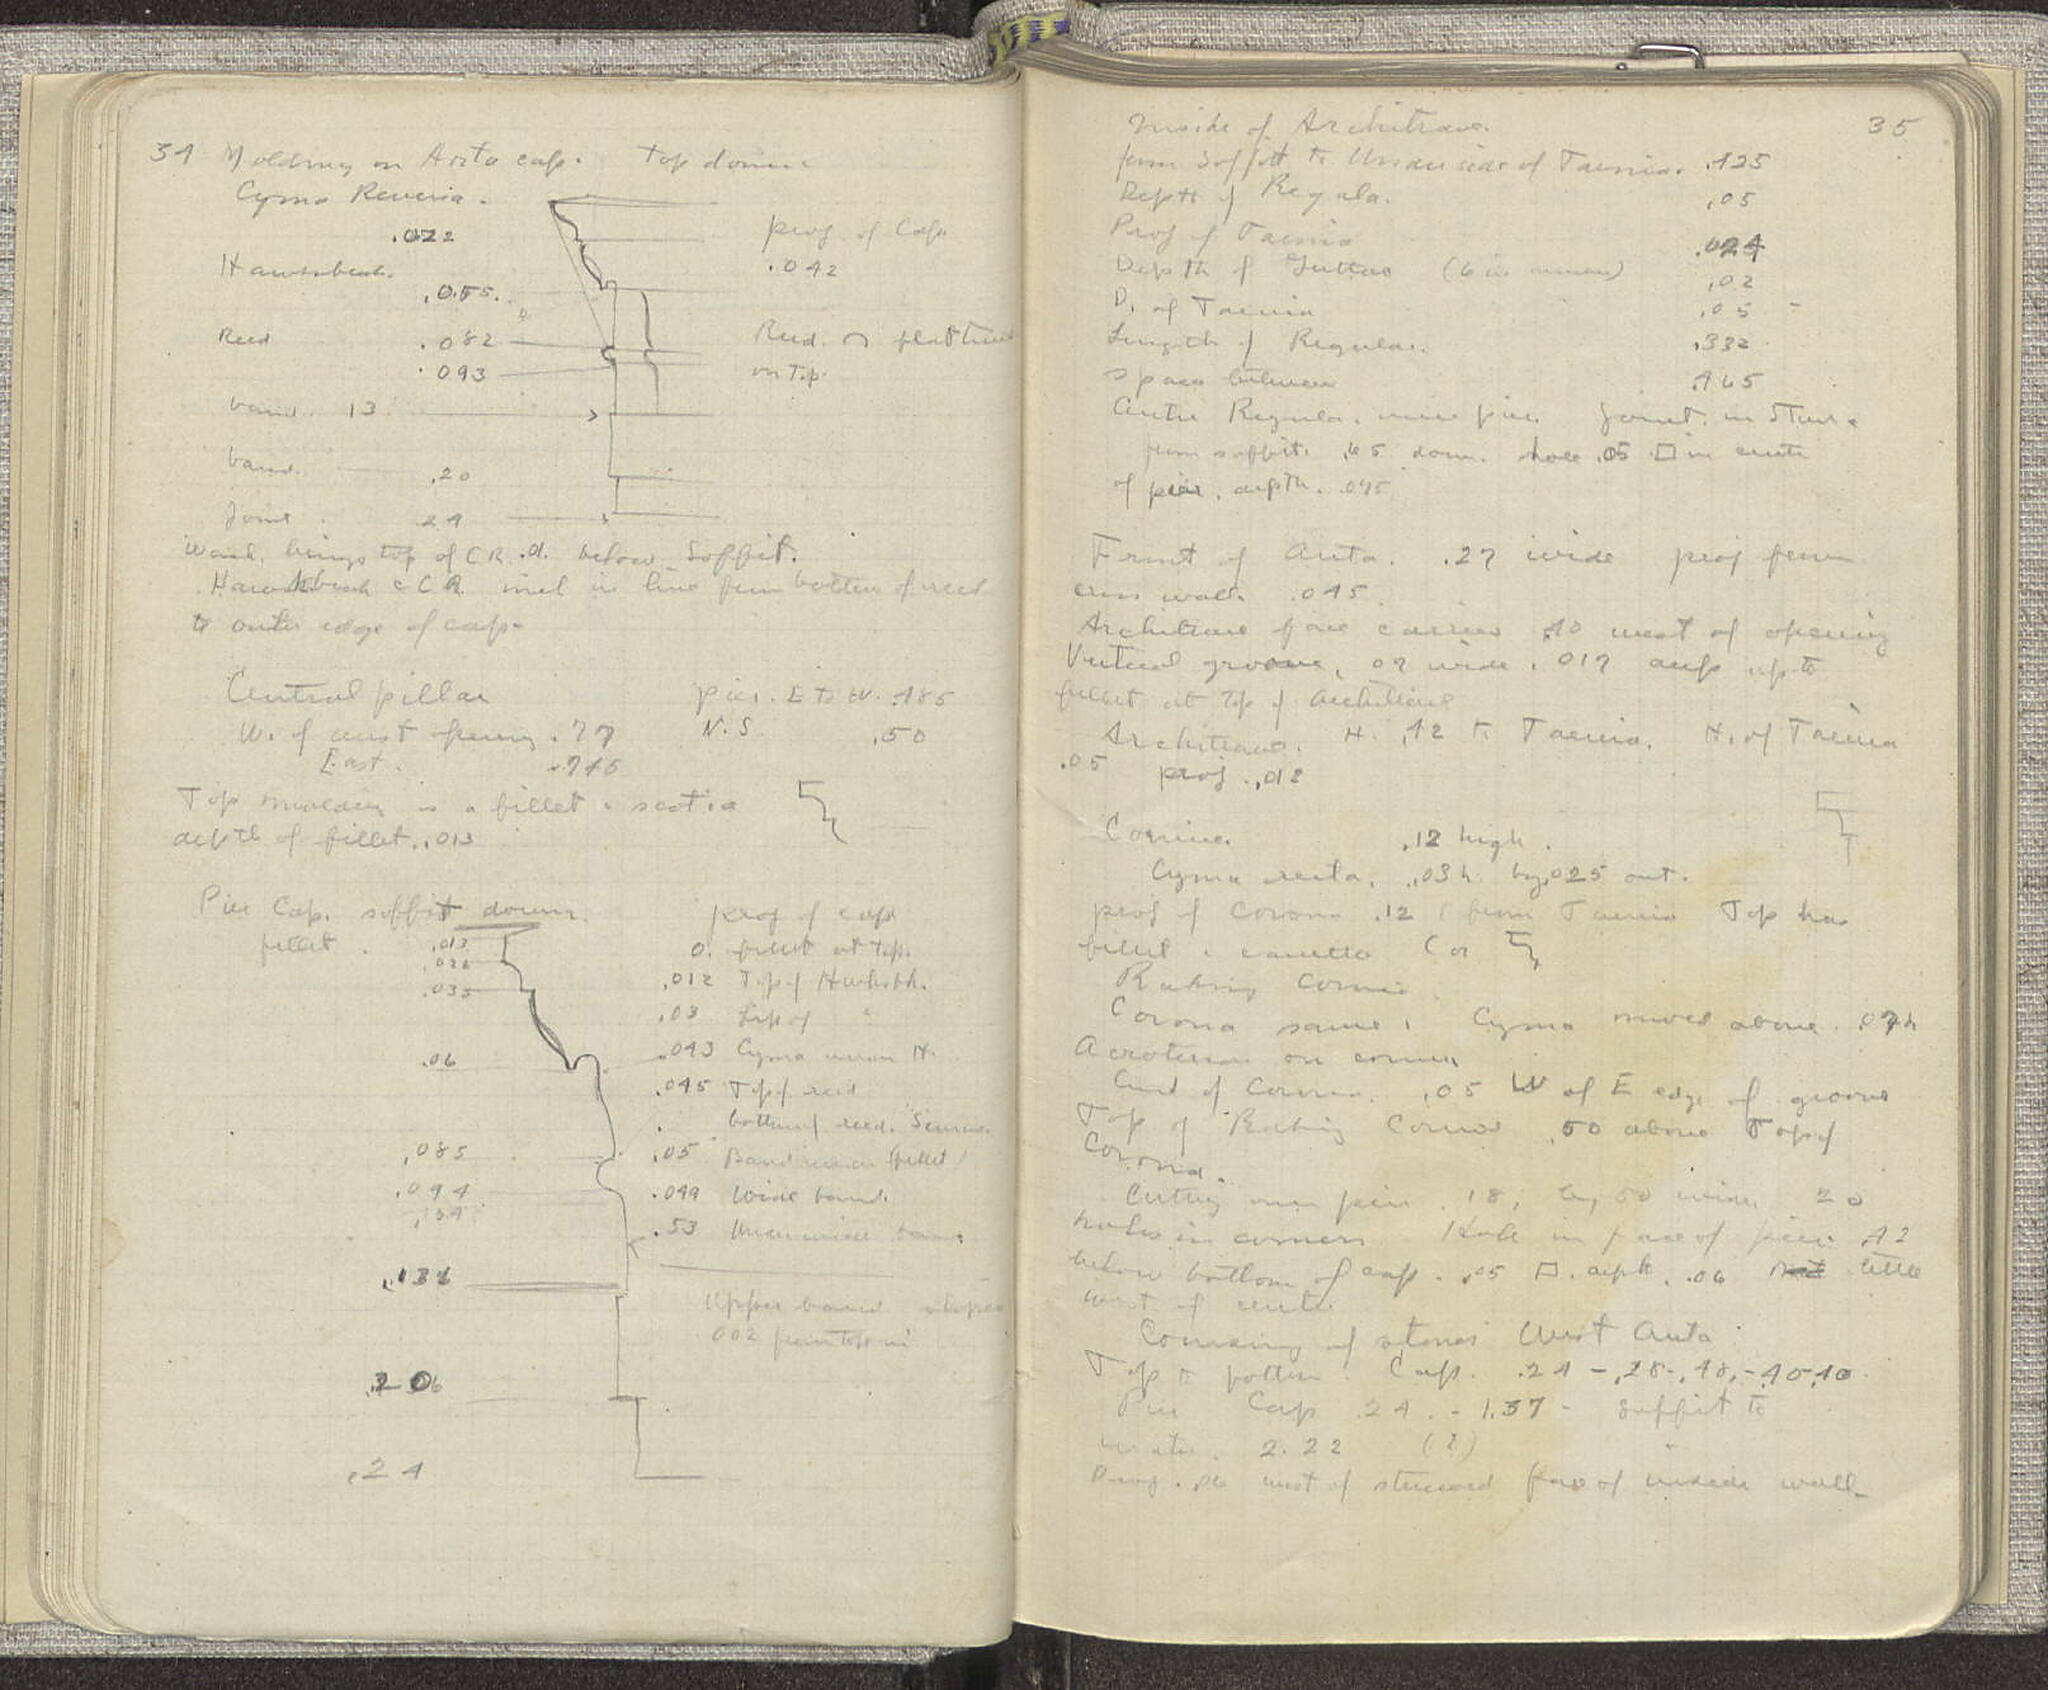 34 Molding on Anta cap. Top down
Cyma Reversa.
.022
proj. of Cap.
.042
Hawksbeak.
.055
Reed .082
.093
Reed flattened
on top.
band. 13
band. .20
Joint. .24
Wash. brings top of C.R. .01 below Soffit.
Hawksbeak & C.R. in line from bottom of reed
to outer edge of cap.
Central pillar
pier. E to W. .485
W. of west opening .77
N.S. .50
East.
Top molding is a fillet & scotia
depth of fillet. .013
Pier Cap. soffit down.
proj of cap
fillet. .013
0. fillet at top.
.026
.035
.012 Top of Hwksbk.
.03 Lip of "
.06
.043 Cyma under H.
.045 Top of reed
bottom of reed. Same.
.085
.05 Band under (fillet)
.094
.049 Wide band.
.134
.53 Under wide band
.136
Upper band slopes
.002 from top in
.20
.24
35
Inside of Architrave.
from Soffit to Underside of Taenia. .425
Depth of Regula. .05
Proj of Taenia .024
Depth of Guttae (6 in number) .02
D. of Taenia .05
Length of Regulae. .332
space between .465
Centre Regula. over pier. Joint. in Stone
from soffit. .65 down. hole .05 □ in centre
of pier. depth. .045
Front of Anta. .27 wide proj from
cross wall. .045
Architrave face carries .40 west of opening
Vertical groove, .07 wide .017 deep up to
fillet at top of Architrave
Architrave. H. .42 to Taenia. H. of Taenia
.05 proj .012
Cornice. .12 high.
Cyma recta. .03 h. by .025 out.
proj of Corona .12 from Taenia Top has
fillet & cavetto (or
Raking Cornice
Corona same. Cyma moves above. .07 h
Acroterion on corner
End of Cornice. .05 W of E edge of groove
Top of Raking Cornice .50 above Top of
Corona.
Cutting over pier .18, by .50 wide 20
holes in corners Hole in face of pier .42
below bottom of cap. .05 □. depth .06 little
west of centre
Coursing of stones West Anta
Top to bottom. Cap. .24 - .28 - .48 - .40 - .40
Pier Cap .24. - 1.37 - Soffit to
water. 2.22 (?)
west of stuccoed face of inside wall